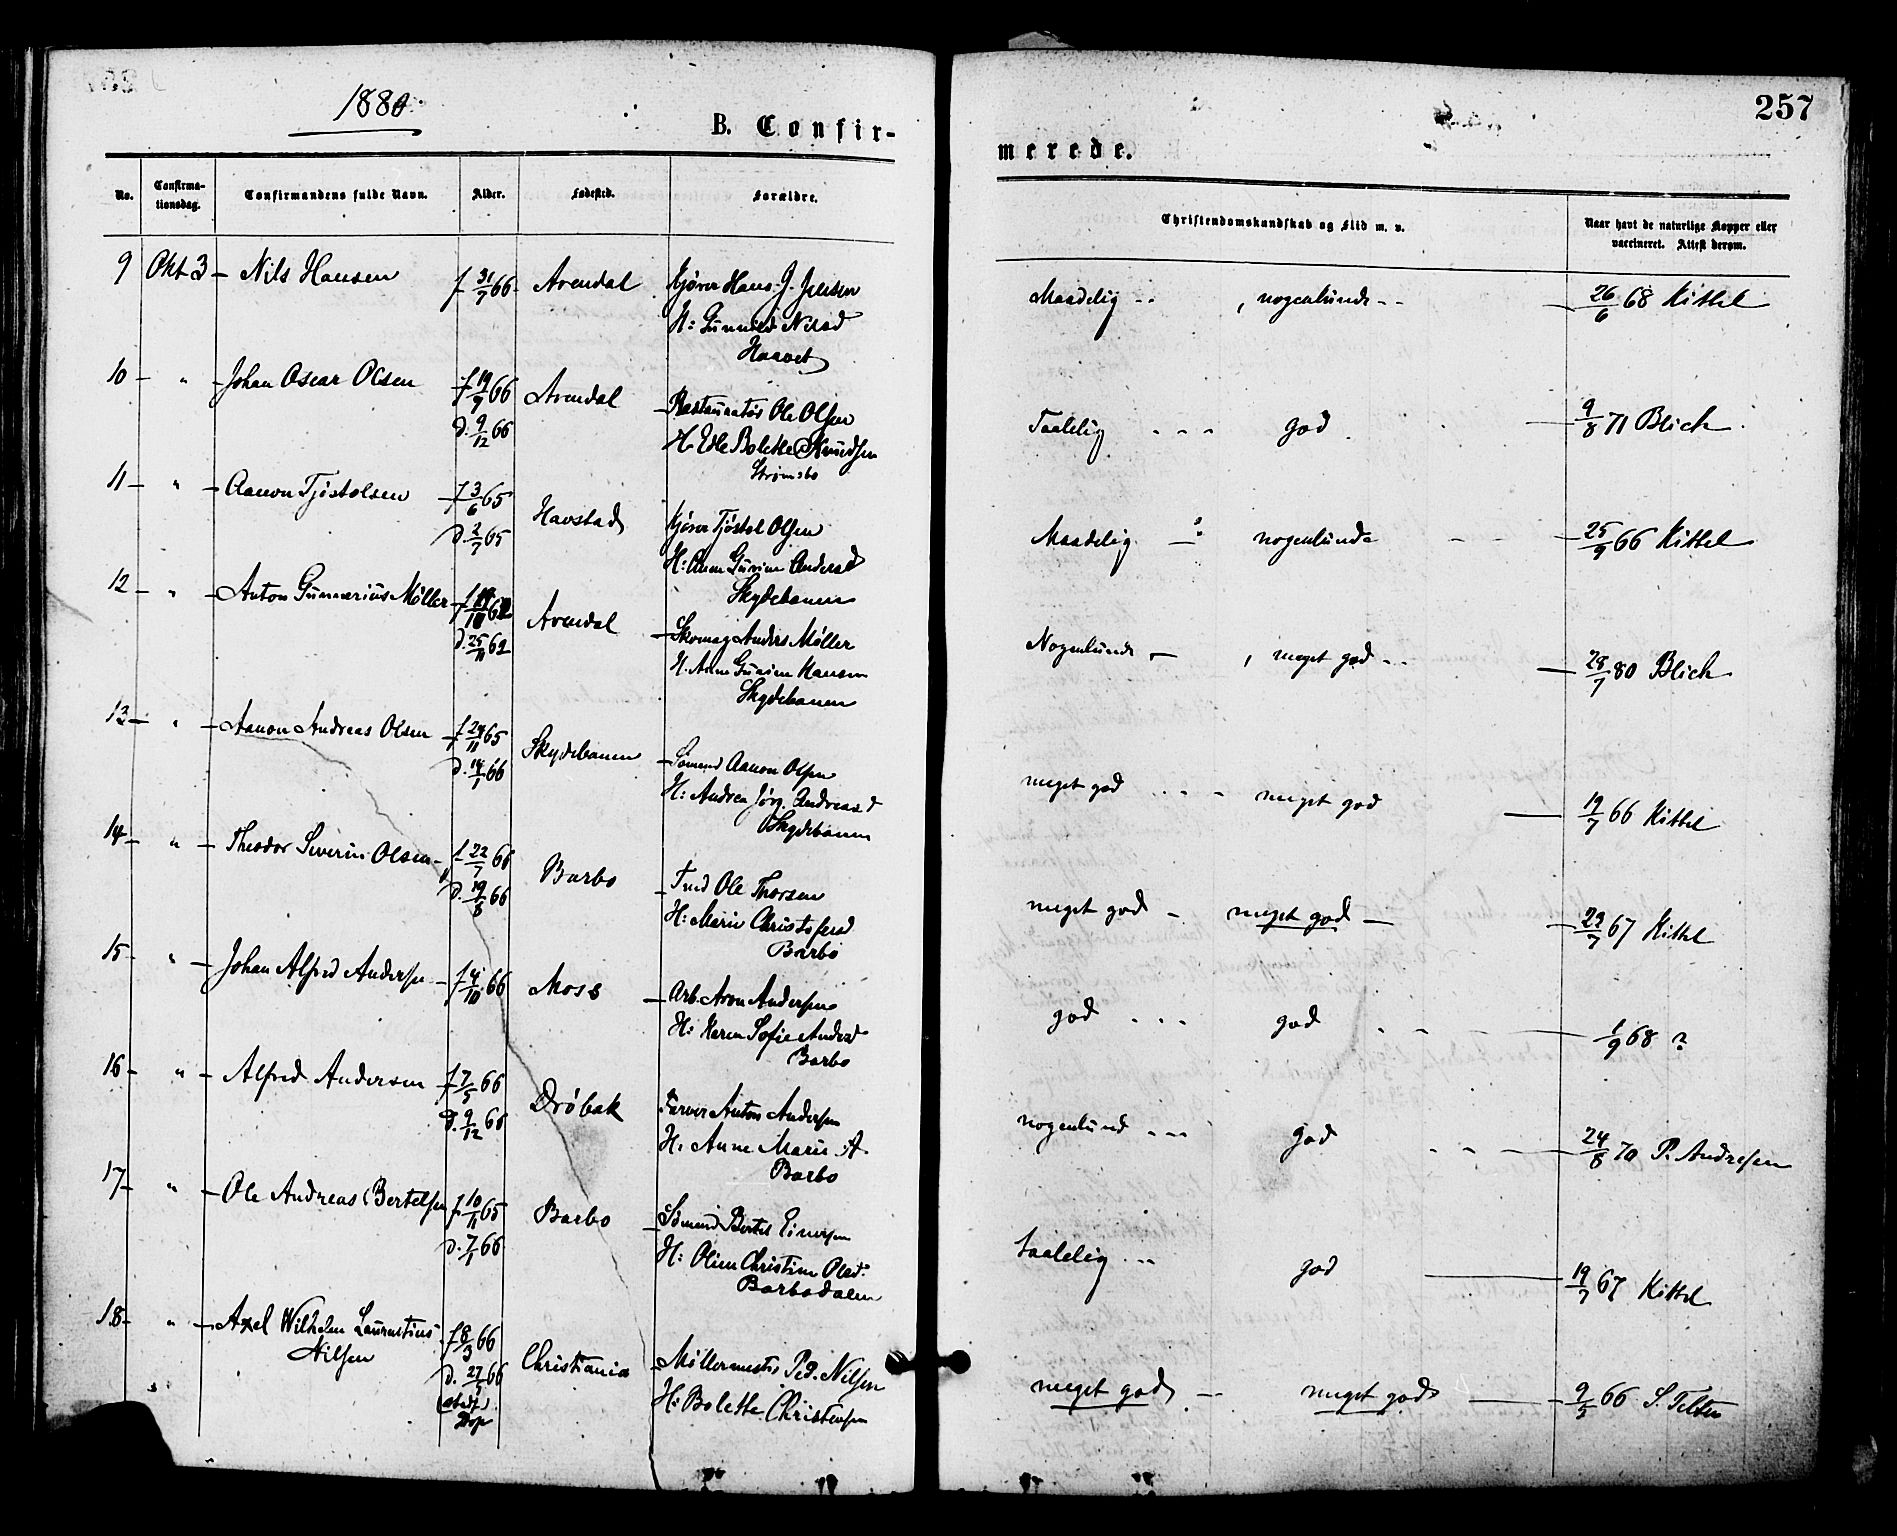 1880.
257
B. Confir-
merede.
No.
Confirma-
tionsdag.
Confirmandens fulde Navn.
Alder.
Fødested.
Forældre.
Christendomskundskab og Flid m. v.
Naar havt de naturlige Kopper eller
vaccineret. Attest derom.
9 Okt 3 - Nils Hansen f 31/7 66 - Arendal Kjører Hans J. Jensen
H: Gunnild Nilsd
Haavet
Maadelig - - , nogenlunde - - 26/6 68 Kittel
10 - " - Johan Oscar Olsen f 19/9 66 Arendal - Restauratør Ole Olsen
d. 9/12 66
H. Edle Bolette Knudsen
Strømsbo
Taalelig - - - god 9/8 71 Blich
11 - " - Aanon Tjøstolsen - f 3/6 65 Havstad Kjører Tjøstol Olsen
d. 2/7 65
H: Anne Gurine Andersd
Skydebanen
Maadelig - nogenlunde - - - 25/9 66 Kittel
12 - " - Anton Gunnerius Møller - Arendal - Skomag Anders Møller
d. 25/11 62
H. Anne Gurine Hansen
Skydebanen
Nogenlunde - , meget god - - 28/7 80 Blich
13 - " - Aanon Andreas Olsen f 24/11 65 Skydebanen - Sømand Aanon Olsen
d. 14/1 66
H: Andrea Jörg. Andreasd
Skydebanen
meget god - - - meget god - 19/7 66 Kittel
14 - " - Theodor Severin Olsen - f 22/7 66 Barbo - Tmd Ole Thorsen
d. 19/8 66
H: Marie Christofersd
Barbo
meget god - meget god - 29/7 67 Kittel
15 - " - Johan Alfred Andersen - f 4/10 66 Moss - Arb. Aron Andersen
H: Karen Sofie Andersd
Barbo
god - - - god - - - 1/9 68 ?
16 - " - Alfred Andersen f 7/5 66 Drøbak Farver Anton Andersen
d. 9/12 66
H. Anne Marie A.
Barbo
nogenlund - - - god - - - 24/8 70 P. Andresen
17 - " - Ole Andreas Bertelsen f 10/11 65 Barbo - Sömand Bertel Einersen
d. 7/1 66
H: Oline Christine Olsd.
Barbodalen
taalelig - - god - 19/7 67 Kittel
18 - " - Axel Wilhelm Laurentius f 8/3 66 Christiania - Møllermester Ped. Nilsen
Nilsen
d. 27/5 66
Dop
H: Bolette Christensen
meget god - meget god - 9/5 66 S.